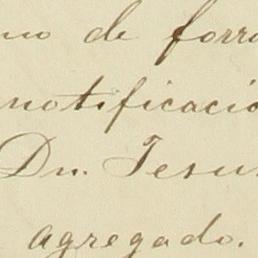 no de forra
notificació
Dn. Jesus
agregado.